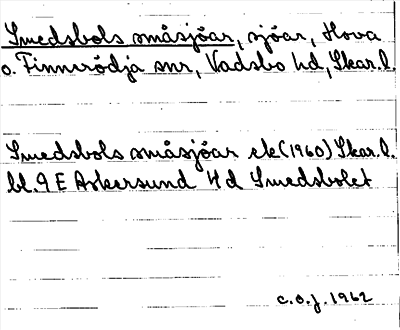 Smedsbols småsjöar, sjöar, Hova
o. Finnerödja snr, Vadsbo hd, Skar. l.
Smedsbols småsjöar ek (1960) Skar. l.
bl. 9 E Askersund 4 d Smedsbolet
c.o.j. 1962